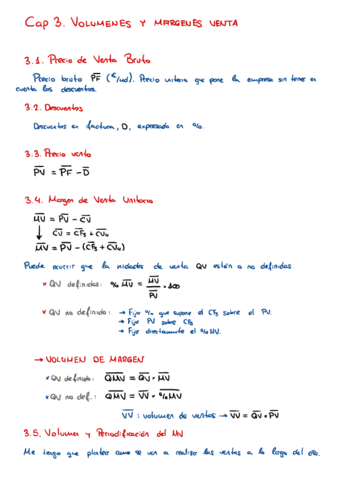 Cap 3. VOLUMENES Y MARGENES VENTA
3.1. Precio de Venta Bruto
Precio bruto PF (€/ud). Precio unitario que pone la empresa sin tener en
cuenta los descuentos.
3.2. Descuentos
Descuentos en factura, D, expresado en %.
3.3. Precio venta
PV = PF - D
3.4. Margen de Venta Unitario
MV = PV - CU
↓ CU = CFs + CVu
MV = PV - (CFs + CVu)
Puede ocurrir que la unidades de venta QV estén o no definidas.
× QV definidas: % MV = MV / PV · 100
× QV no definido: → Fijo % que supone el CFs sobre el PV.
→ Fijo PV sobre CFs
→ Fijo directamente el % MV.
→ VOLUMEN DE MARGEN
× QV definida: QMV = QV × MV
× QV no def.: QMV = VV × %MV
VV: volumen de ventas → VV = QV × PV
3.5. Volumen y Periodificación del MV
Me tengo que plantear como se van a realizar las ventas a lo largo del año.